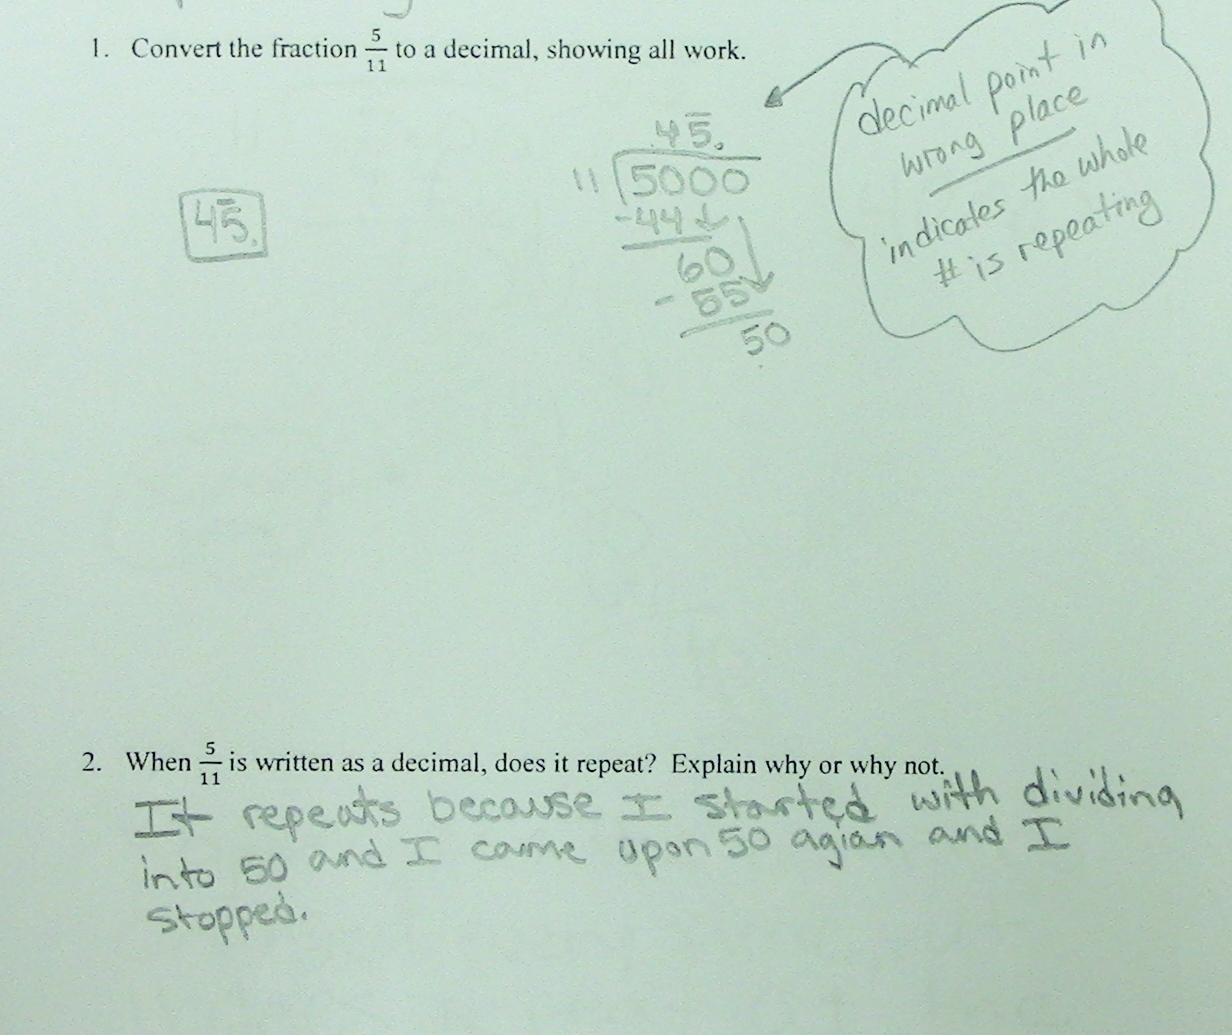 1. Convert the fraction 5/11 to a decimal, showing all work.
decimal point in
wrong place
indicates the whole
# is repeating
.45̅.
11 5000
-44
60
- 55
50
45̅.
2. When 5/11 is written as a decimal, does it repeat? Explain why or why not.
It repeats because I started with dividing
into 50 and I came upon 50 agian and I
stopped.